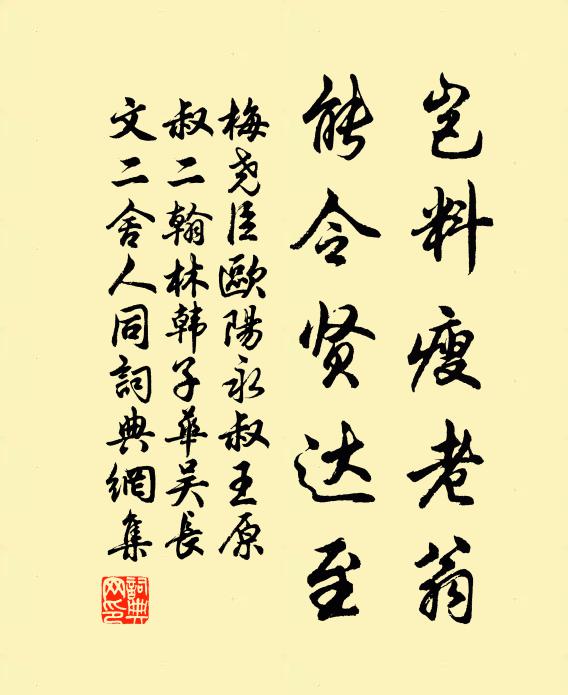 岂料瘦老翁
能令贤达至
梅尧臣歐陽永叔王原
叔二翰林韩子華吴長
文二舍人同詞典網集
詞典
网印